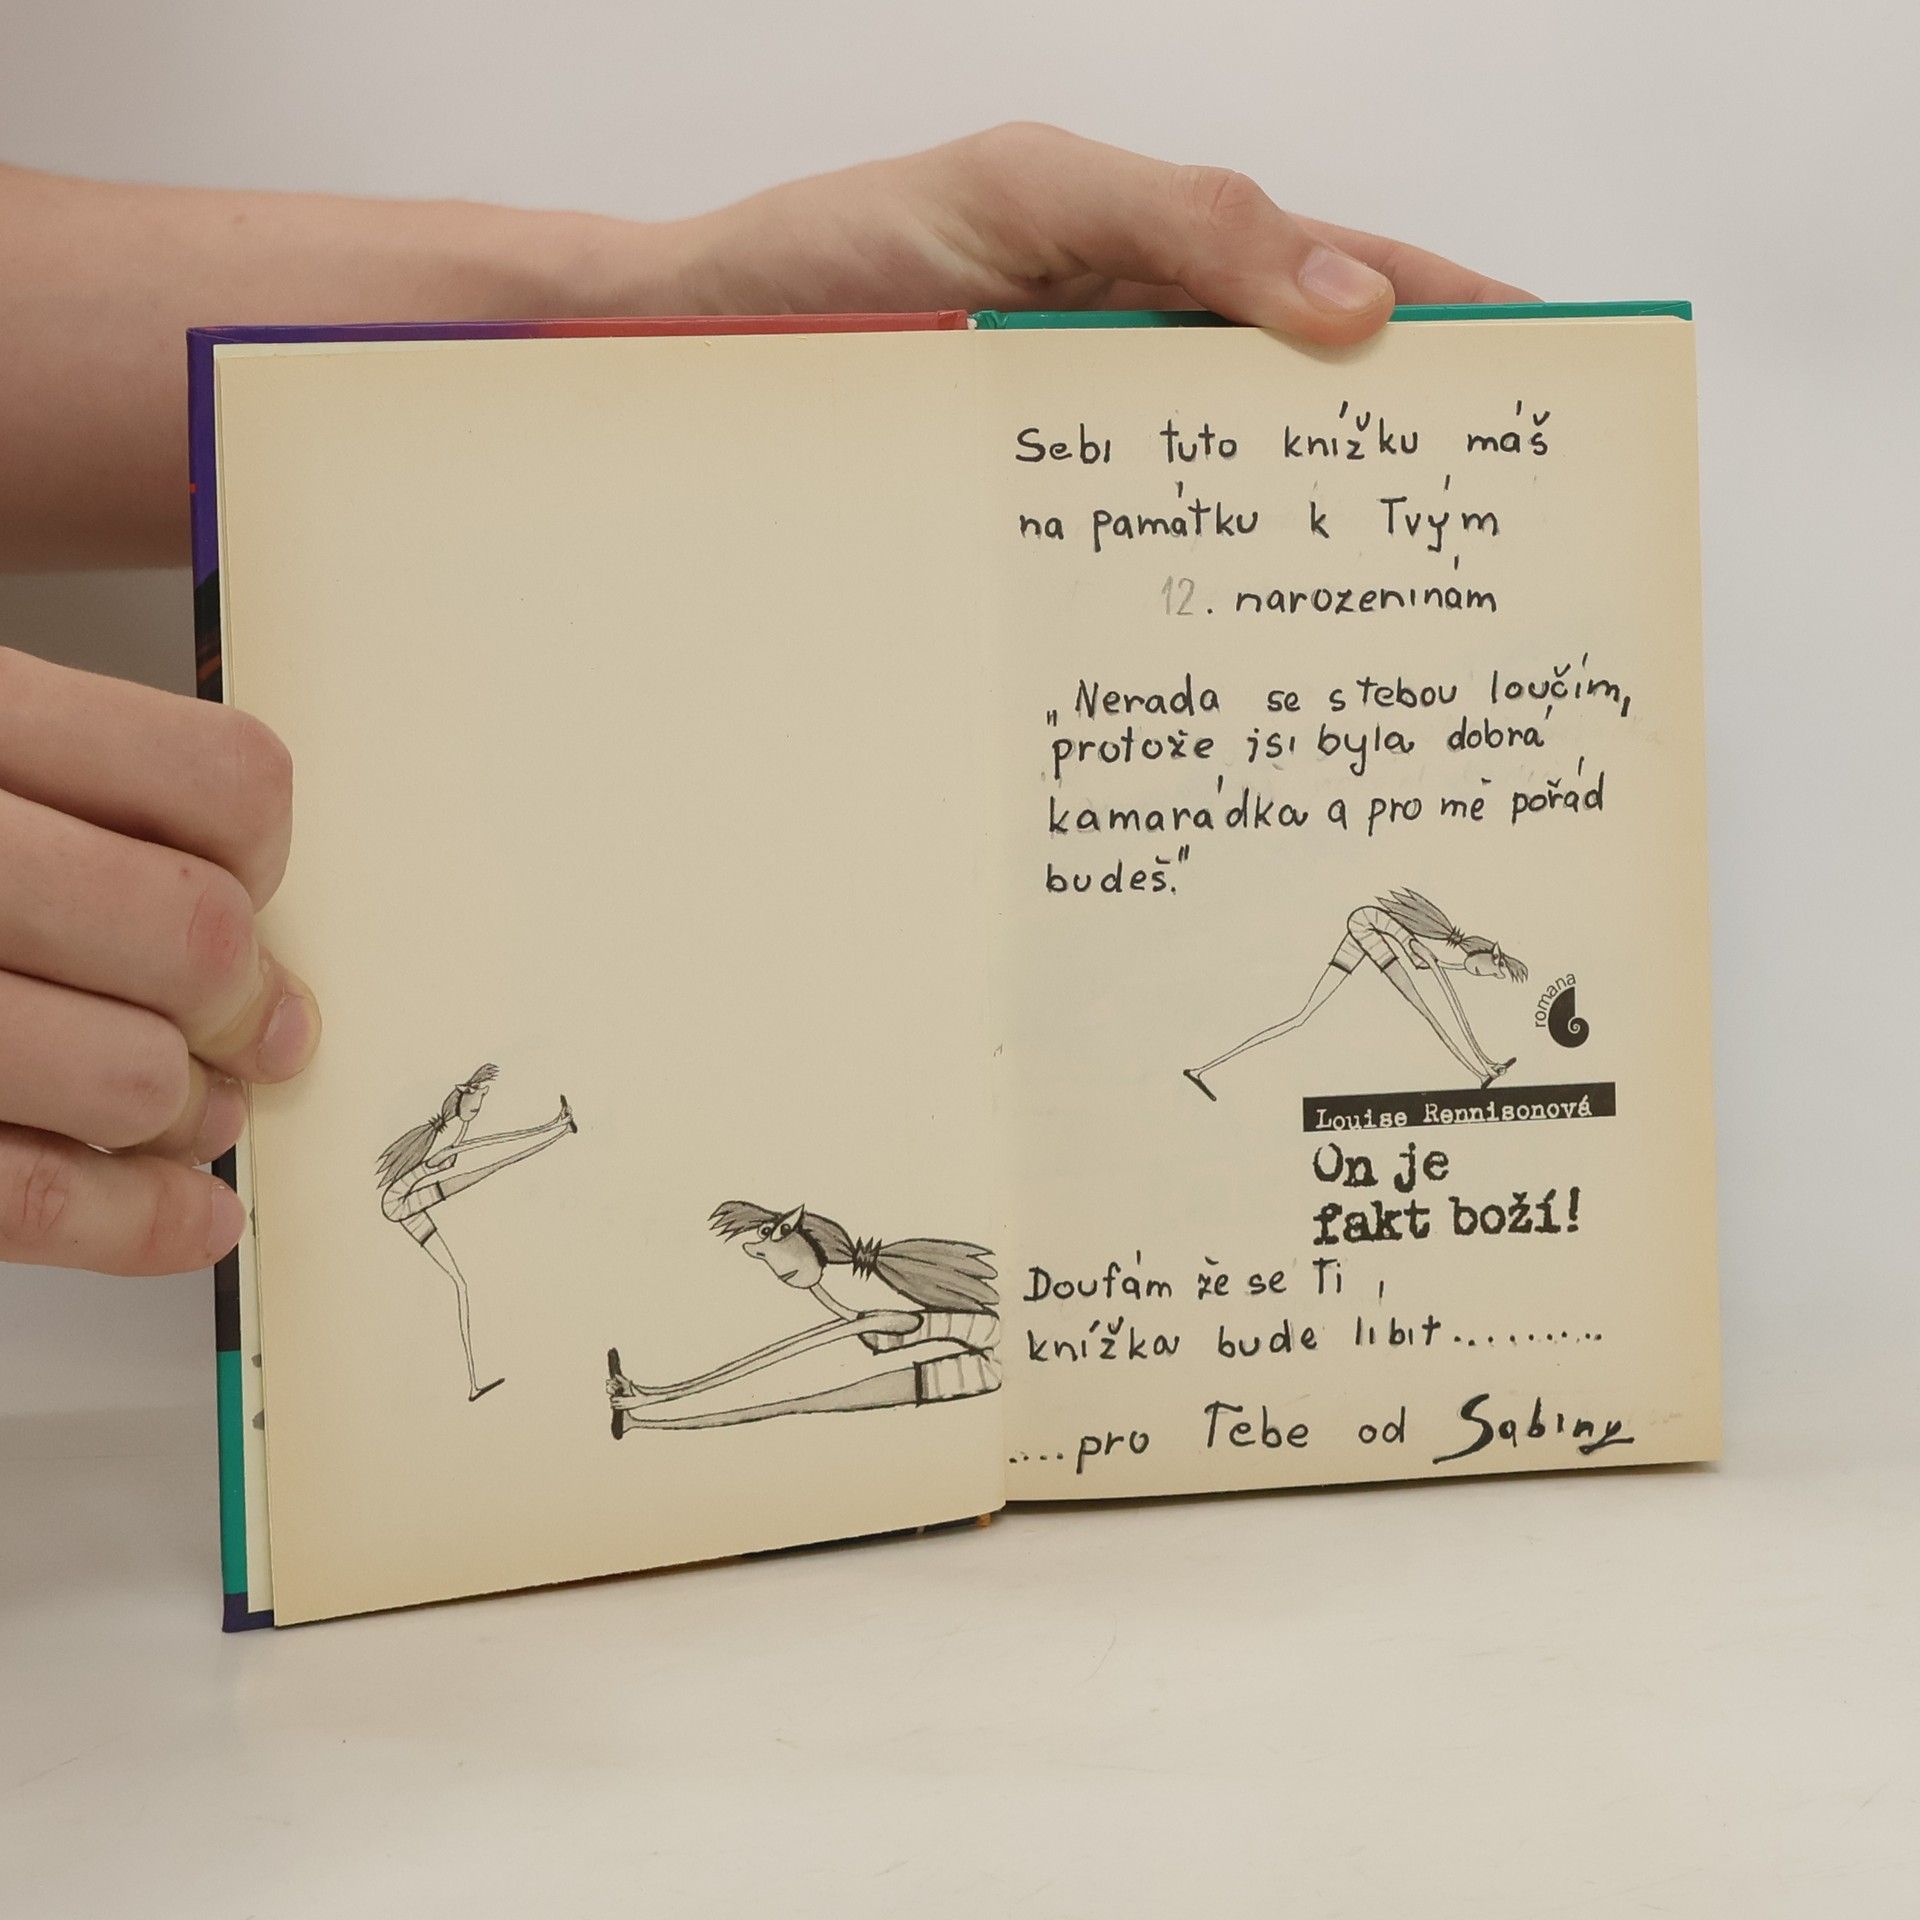 Sebi tuto knížku máš
na památku k Tvým
12. narozeninám
„Nerada se s tebou loučím,
protože jsi byla dobrá
kamarádka a pro mě pořád
budeš."
romana
Louise Rennisonová
On je
fakt boží!
Doufám že se Ti
knížka bude líbit..........
....pro Tebe od Sabiny